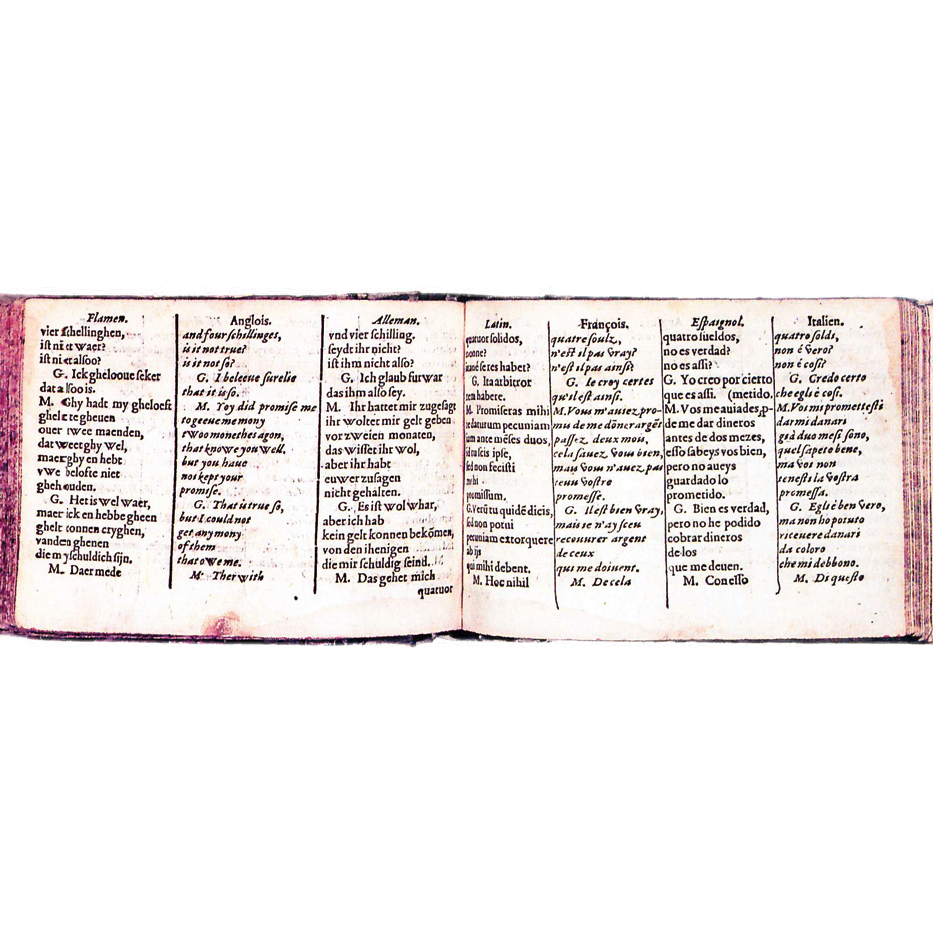 Flamen.
vier schellinghen,
ist niet waer?
ist niet alsoo?
G. Ick ghelooue seker
dat alsoo is.
M. Ghy hadt my gheloeft
ghelt te gheuen
ouer twee maenden,
dat weet ghy wel,
maer ghy en hebt
vwe belofte niet
ghehouden.
G. Het is wel waer,
maer ick en hebbe gheen
ghelt connen cryghen,
van den ghenen
die my schuldich sijn.
M. Daer mede
Anglois.
and four schillinges,
is it not true?
is it not so?
G. I beleeue surelie
that it is so.
M. Yoy did promise me
to geeue me mony
two monethes agon,
that knowe you well,
but you haue
not kept your
promise.
G. That is true so,
but I could not
get any mony
of them
that owe me.
M. Ther with
Alleman.
vnd vier schilling.
seydt ihr nicht?
ist ihm nicht also?
G. Ich glaub furwar
das ihm also sey.
M. Ihr hattet mir zugesagt
ihr woltet mir gelt geben
vor zweien monaten,
das wisset ihr wol,
aber ihr habt
euwer zusagen
nicht gehalten.
G. Es ist wol whar,
aber ich hab
kein gelt konnen bekõmen,
von den ihenigen
die mir schuldig seind.
M. Das gehet mich
quatuor
Latin.
quatuor solidos,
nonne?
res habet?
G. Ita arbitror
rem habere.
M. Promiseras mihi
te daturum pecuniam
iam ante mēses duos,
id scis ipse,
sed non fecisti
promissum.
G. Verū tu quidē dicis,
sed non potui
pecuniam extorquere
ab ijs
qui mihi debent.
M. Hoc nihil
François.
quatre soulz,
n'est il pas vray?
n'est il pas ainsi?
G. Ie croy certes
qu'il est ainsi.
M. Vous m'auiez pro-
mu de me dōner argēt
passez deux mois,
cela sauez vous bien,
mais vous n'auez pas
tenu vostre
promesse.
G. Il est bien vray,
mais ie n'ay sceu
recouurer argent
de ceux
qui me doiuent.
M. De cela
Espaignol.
quatro sueldos,
no es verdad?
no es assi?
G. Yo creo por cierto
que es assi. (metido.
M. Vos me auiades p-
de me dar dineros
antes de dos mezes,
esso sabeys vos bien,
pero no aueys
guardado lo
prometido.
G. Bien es verdad,
pero no he podido
cobrar dineros
de los
que me deuen.
M. Con esso
Italien.
quatro soldi,
non é vero?
non é cosi?
G. Credo certo
che egli é cosi.
M. Voi mi promettesti
darmi danari
già duo mesi sono,
quel sapete bene,
ma voi non
tenesti la vostra
promessa.
G. Egli è ben vero,
ma non ho potuto
riceuere danari
da coloro
che mi debbono.
M. Di questo